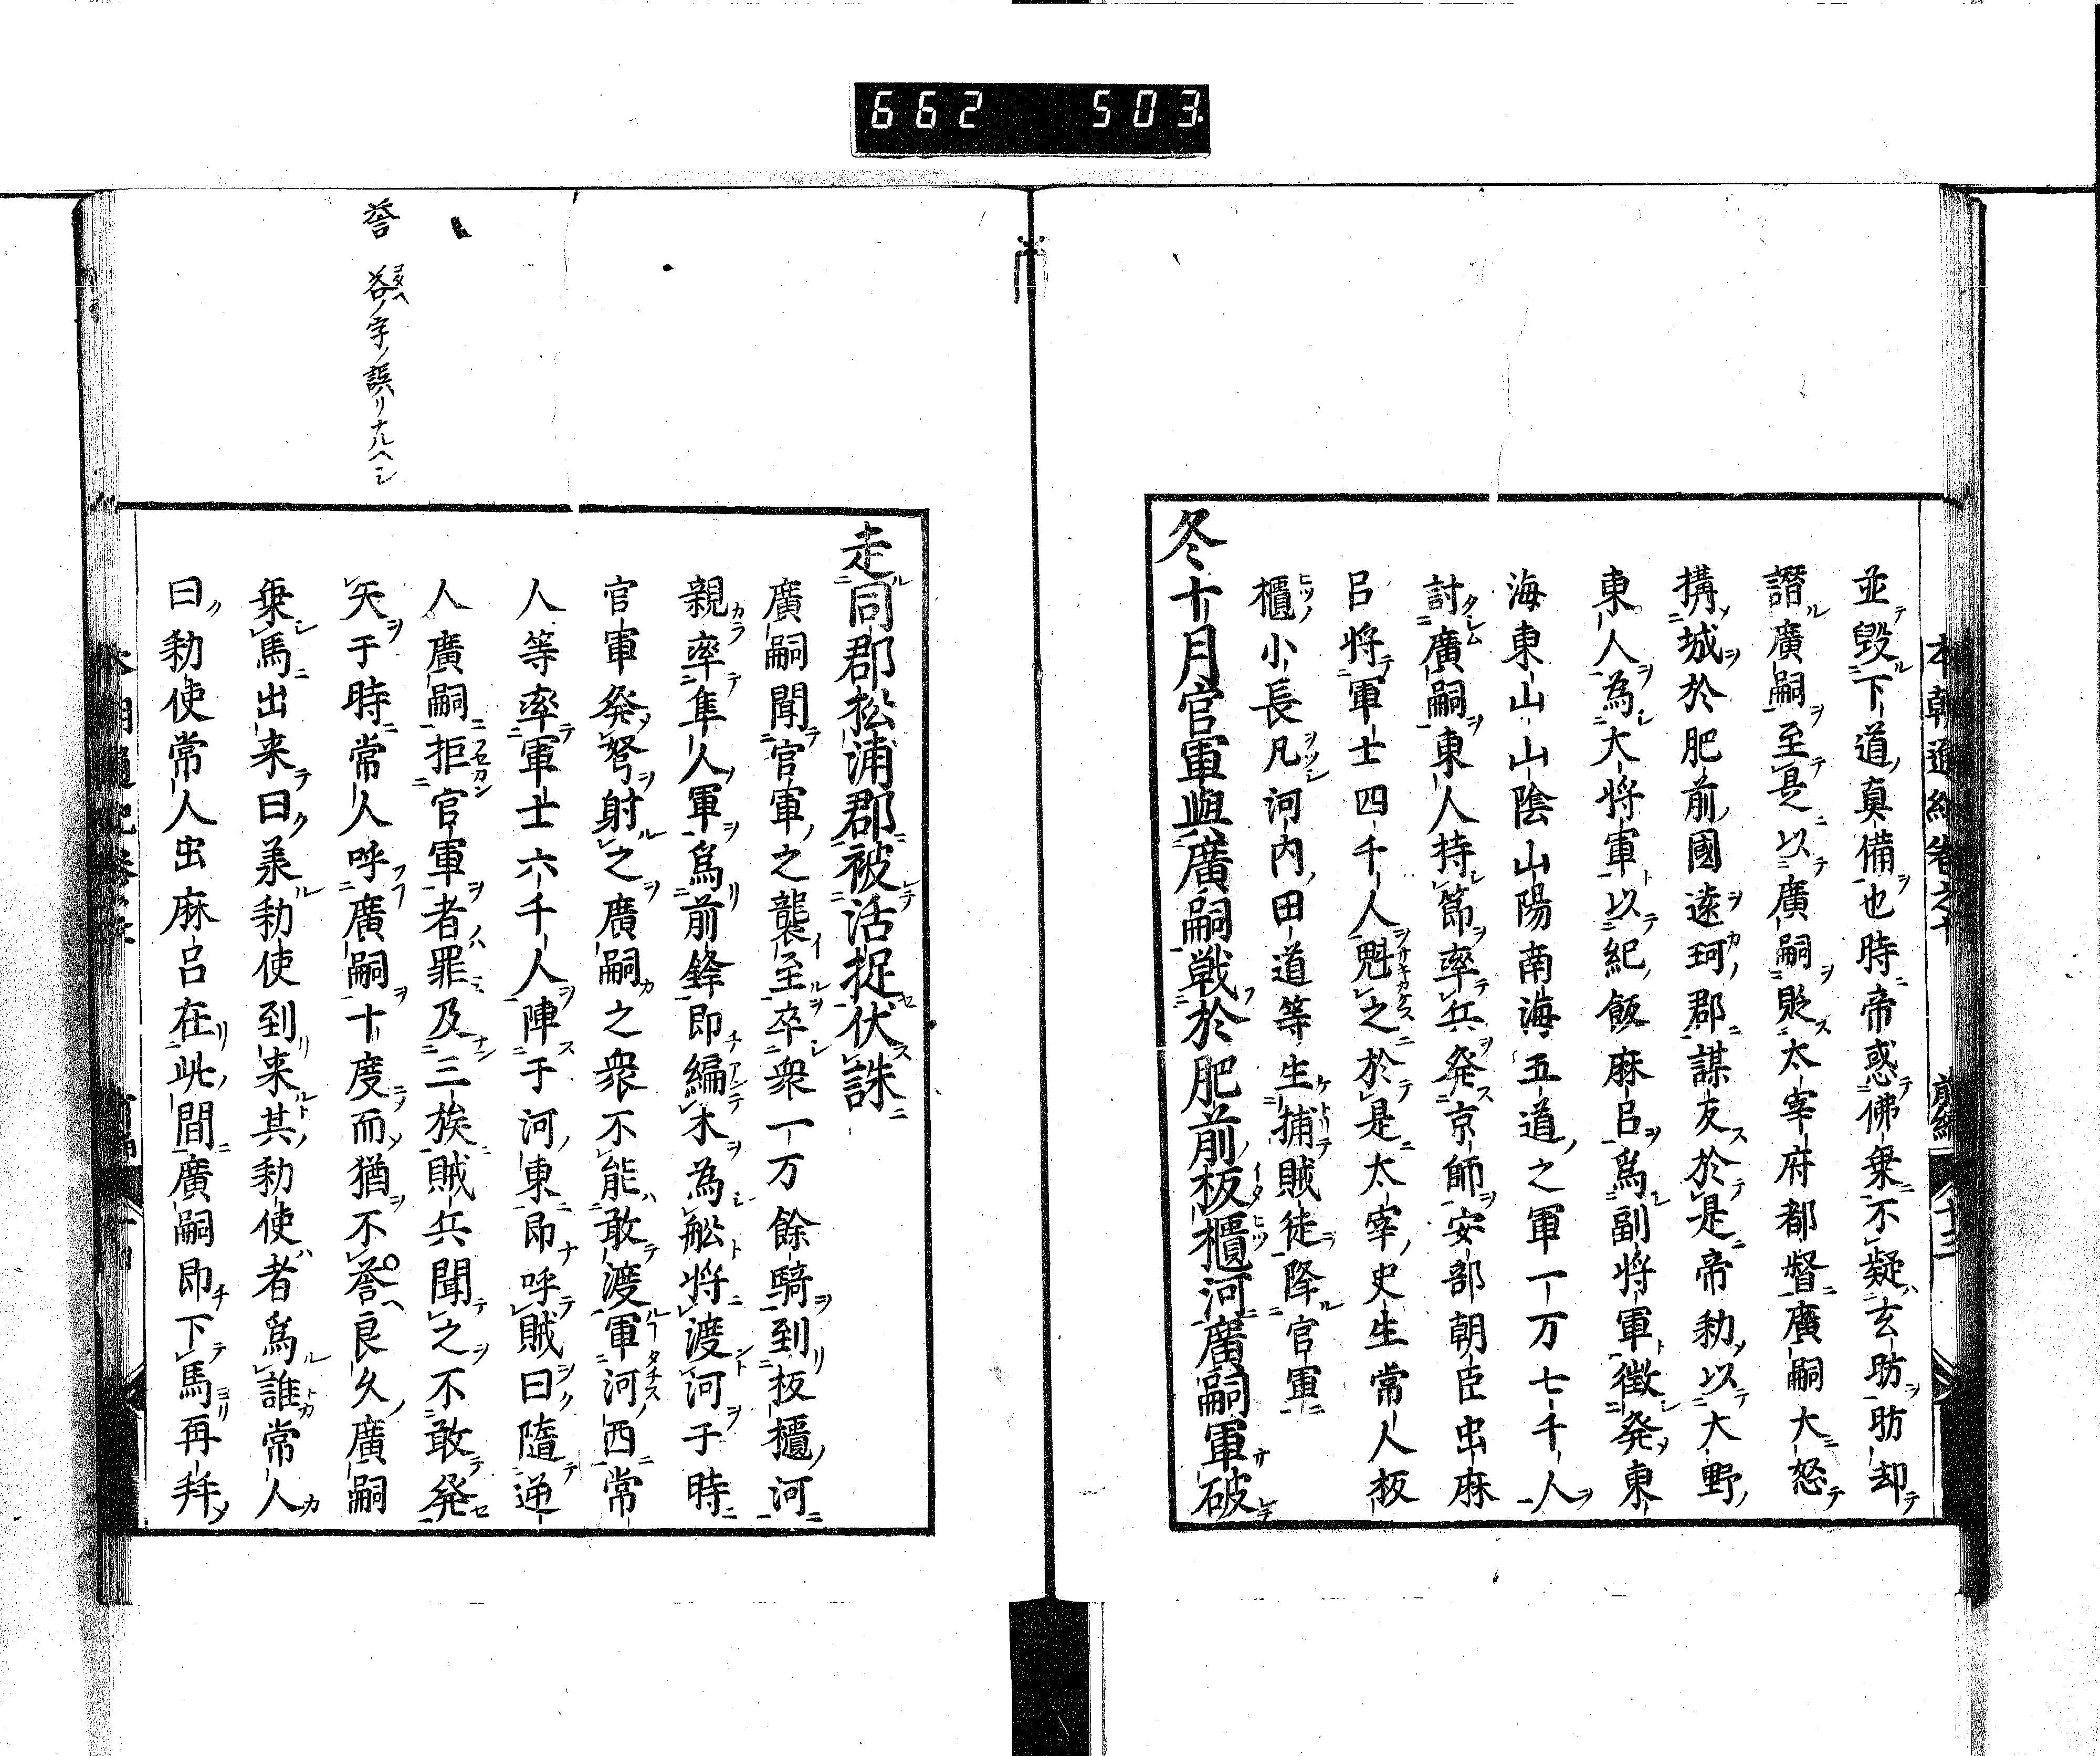 662 503
本朝通紀卷之十 前編 十三
並毀下道真備也時帝惑佛乗不疑玄昉昉却
譖廣嗣至是以廣嗣貶太宰府都督廣嗣大怒
搆城於肥前國逺珂郡謀反於是帝勅以大野
東人為大将軍以紀飯麻呂爲副将軍徴発東
海東山山陰山陽南海五道之軍一万七千人
討廣嗣東人持節率兵発京師安部朝臣虫麻
呂将軍士四千人魁之於是太宰史生常人板
櫃小長凡河内田道等生捕賊徒降官軍
冬十月官軍與廣嗣戦於肥前板櫃河廣嗣軍破
走同郡松浦郡被活捉伏誅
廣嗣聞官軍之襲至卒衆一万餘騎到板櫃河
親率隼人軍爲前鋒即編木為舩将渡河于時
官軍発弩射之廣嗣之衆不能敢渡軍河西常
人等率軍士六千人陣于河東即呼賊曰隨逆
人廣嗣拒官軍者罪及三族賊兵聞之不敢発
矢于時常人呼廣嗣十度而猶不荅良久廣嗣
乗馬出来曰羕勅使到来其勅使者爲誰常人
曰勅使常人虫麻呂在此間廣嗣即下馬再拜
荅 答ノ字ノ誤リナルヘシ